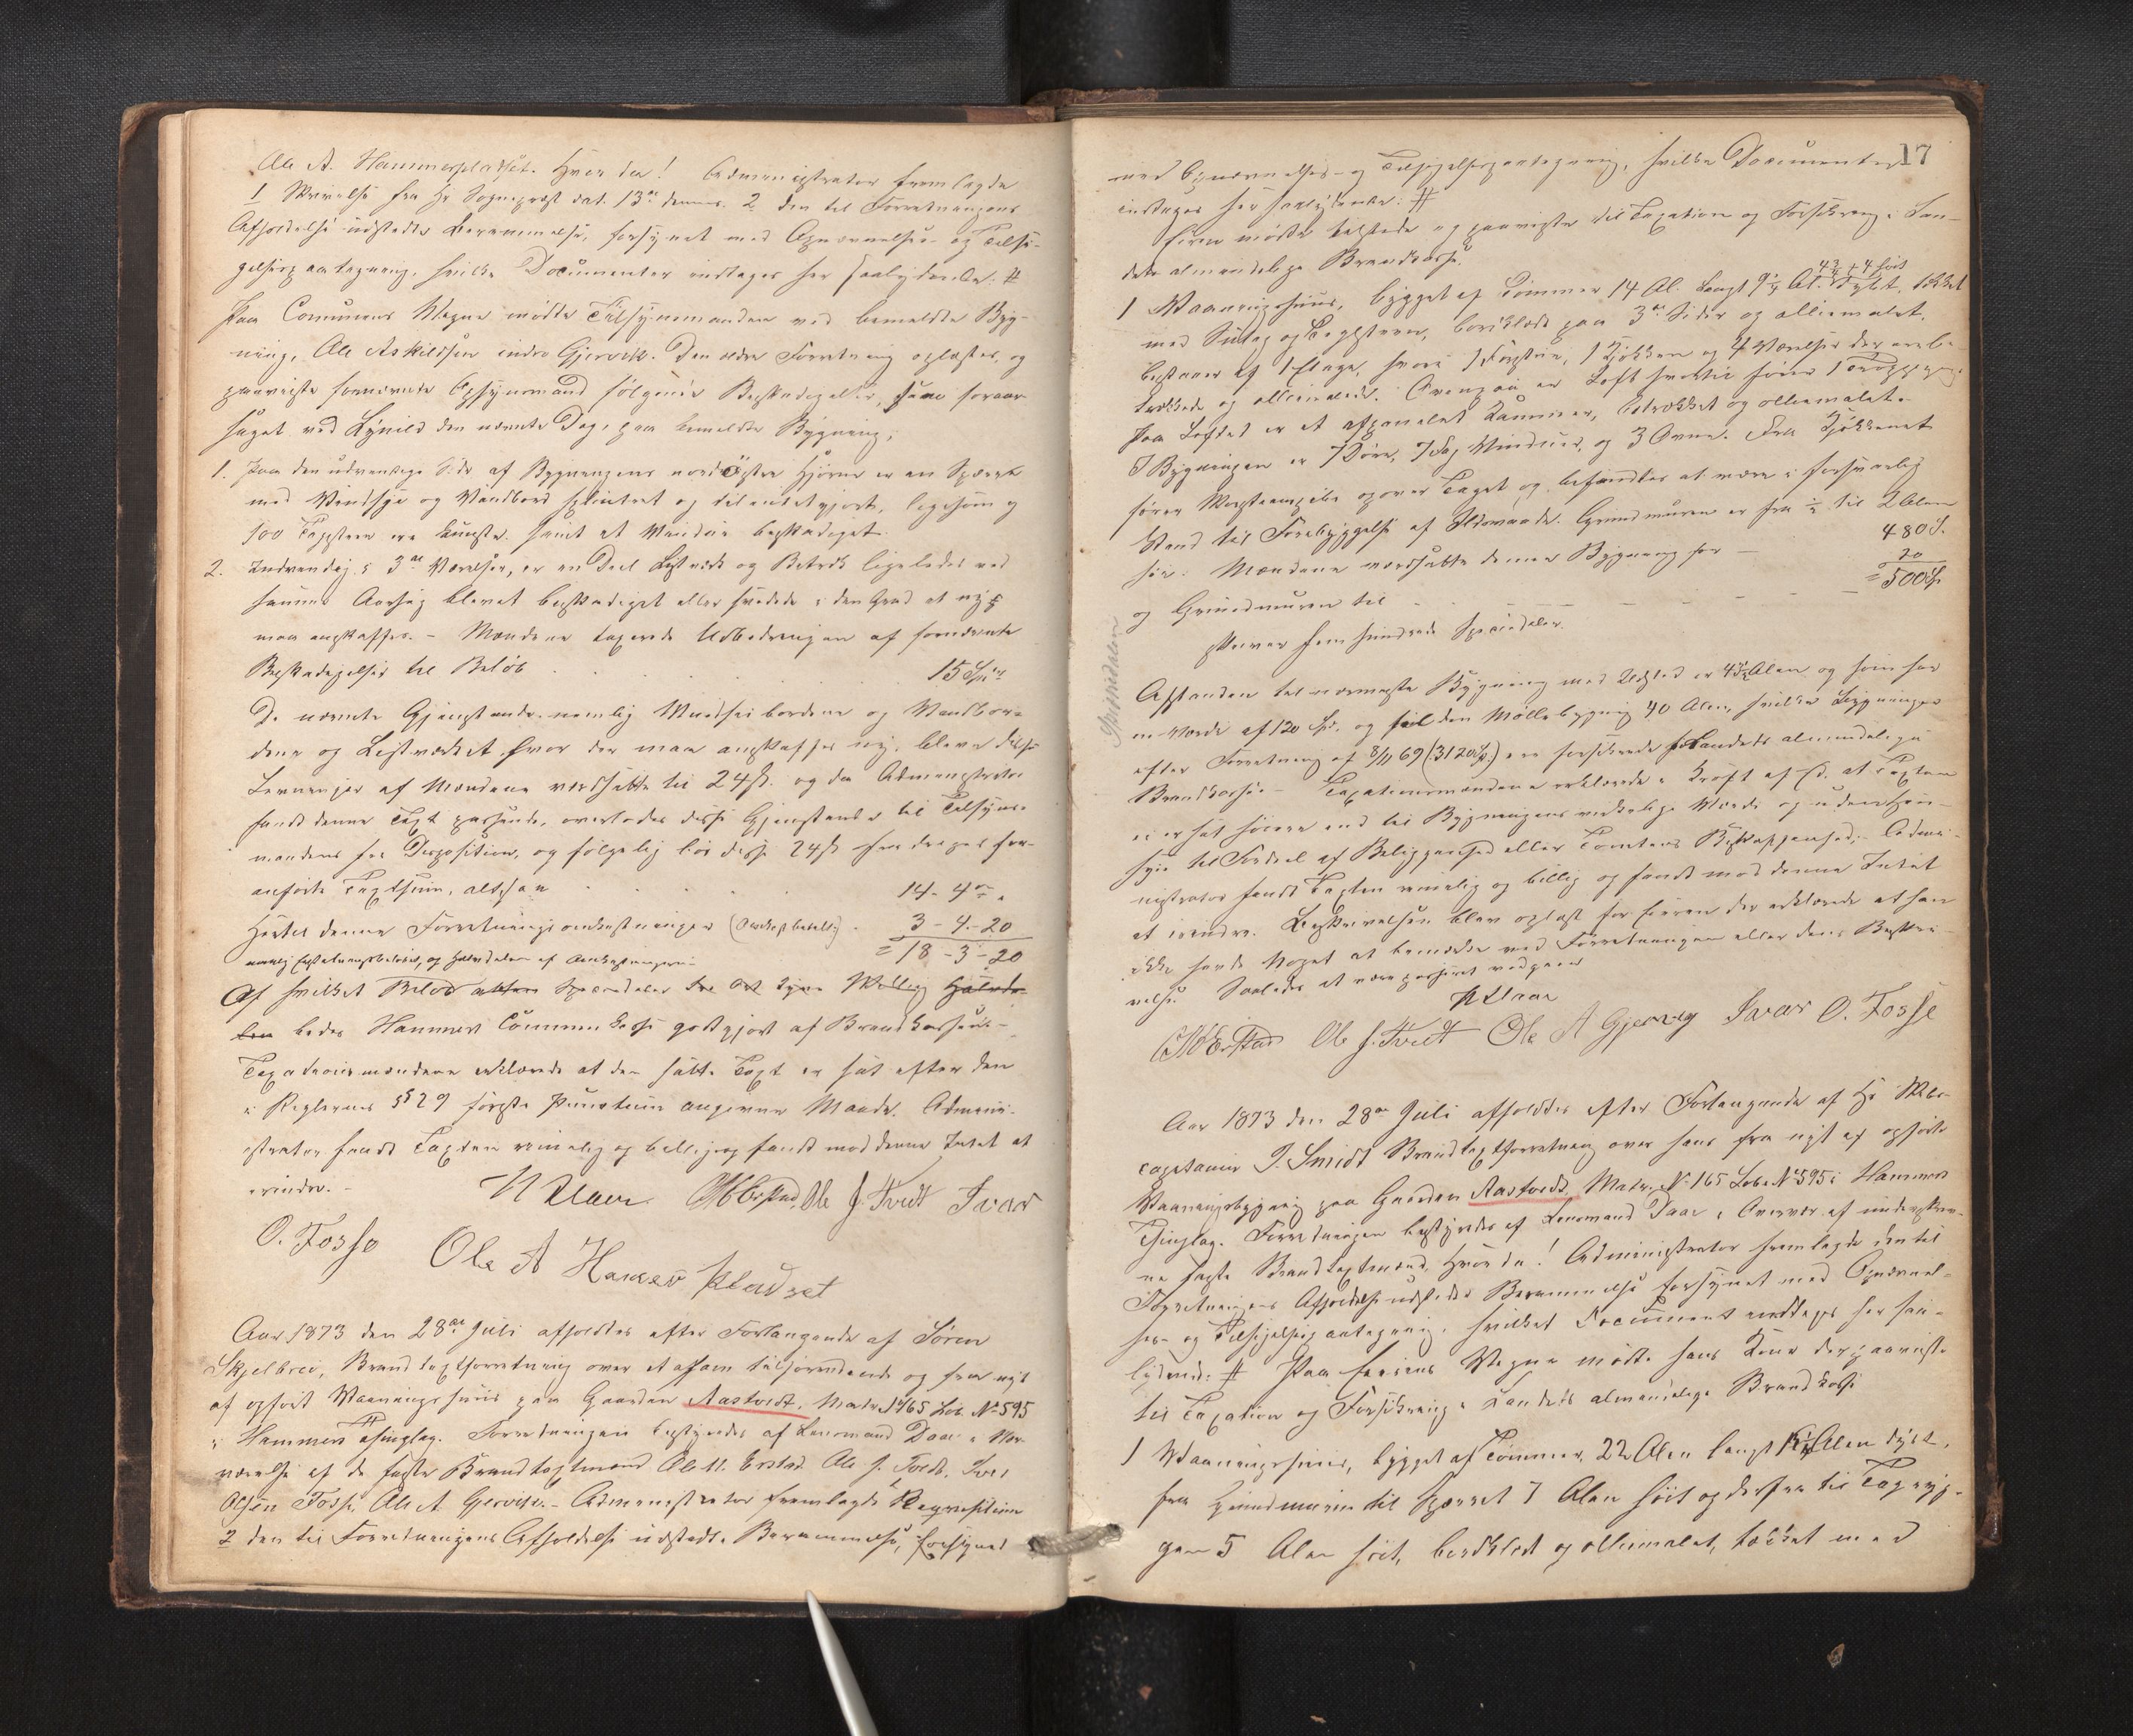 Ole A. Hammerpladset. Hvor da! Administrator fremlagde
1 Skrivelse fra Hr Sognepræst dat. 13de dennes. 2 den til Forretningens
Afholdelse udstedte Berammelse, forsynet med Opnævnelses- og Tilsi-
gelsespaategning, hvilke Documenter indtages her saalydende: #
Paa Communens Vegne mødte Tilsynsmanden ved bemeldte Byg-
ning, Ole Askildsen indre Gjervik. Den ældre Forretning oplæstes, og
paaviste fornævnte Opsynsmand følgende Beskadigelser, som foraar-
saget ved Lynild den nævnte Dag, paa bemeldte Bygning;
1. Paa den udvendige Side af Bygningens nordøstre Hjørne er en Sperre
med Vindskie og Vandbord splintret og tilintetgjort, ligesom
100 Tagsteen ere knuste samt et Vindue beskadiget.
2. Indvendig i 3de Værelser, er en Deel Listværk og Betræk ligeledes ved
samme Aarsag blevet beskadiget eller svedet i den Grad at nyt
maa anskaffes. - Mændene taxerede Udbedringen af fornævnte
Beskadigelser til Beløb 15 Spd
De nævnte Gjenstande nemlig Vindskibordene og Vandbor-
dene og Listværket hvor der maa anskaffes nyt, bleve disse
Levninger af Mændene værdsatte til 24 s. og da Administrator
fandt denne Taxt passende, overlodes disse Gjenstande til Tilsyns-
mandens fri Disposition, og følgelig bør disse 24 s fradrages for-
anførte Taxtsum, altsaa 14 - 4 "
Hertil denne Forretnings omkostninger 3 - 4 - 20
= 18 - 3 - 20
Af hvilket Beløb Speciedaler
bedes Hammers Communekasse godtgjort af Brandkassen.
Taxationsmændene erklærede at den satte Taxt er sat efter den
i Reglernes §29 første Punctum angivne Maade. Admini-
strator fandt Taxten rimelig og billig og fandt mod denne Intet at
erindre. -
N Daae. Ole J. Tvedt Ivar
O. Fosse Ole A Hammerpladset
Aar 1873 den 28de Juli afholdtes efter Forlangende af Søren
Skjelbred, Brandtaxtforretning over et ham tilhørende og fra nyt
af opført Vaaningshuus paa Gaarden Aastvedt, Matr. No 165 Løb. No 595
i Hammers Thinglag. Forretningen bestyredes af Lensmand Daae i Nær-
værelse af de faste Brandtaxtmænd Ole M. Erstad Ole J. Tvedt, Iver
Olsen Fosse, Ole A Gjervik. - Administrator fremlagde Reqvisition
2 den til Forretningens Afholdelse udstedte Berammelse, forsynet
17
med Opnævnelses- og Tilsigelsespaategning, hvilke Documenter
indtages her saalydende: #
Eieren mødte tilstede og paaviste til Taxation og Forsikring i Lan-
dets almindelige Brandkasse.
4 3/4 + 4 høit
1 Vaaningshuus, bygget af Tømmer 14 Al. langt 9 1/4 Al. dybt, tækket
med Sutag og Tagsteen, bordklædt paa 3de Sider og olliemalet,
bestaaer af 1 Etage, hvori 1 Forstue, 1 Kjøkken og 4 Værelser der ere be-
trukket og olliemalede. Ovenpaa er Loft hvortil fører 1 Trappegang
Paa Loftet er et afpanelet Kammer, betrukket og olliemalet.
I Bygningen er 7 Døre, 7 Fag Vinduer, og 3 Ovne. Fra Kjøkkenet
fører Murstenspibe op over Taget og befandtes at være i forsvarlig
Stand til Forebyggelse af Ildsvaade. Grundmuren er fra 1/2 til 2 Alen
høi. Mændene værdsatte denne Bygning for 480 Sp.
og Grundmuren til 20
= 500 Sp
skriver fem hundrede Speciedaler.
Afstanden til nærmeste Bygning med Ildsted er Alen og som har
en Værdi af 120 Spd, og til den Møllebygning 40 Alen, hvilke Bygninger
efter Forretning af 8/11 69 (3120 Sp.) ere forsikrede i Landets almindelige
Brandkasse. - Taxationsmændene erklærede i Kraft af Ed, at Taxten
ei er sat høiere end til Bygningens virkelige Værdi og uden Hen-
syn til Fordeel af Beliggenhed eller Tomtens Beskaffenhed; Admi-
nistrator fandt Taxten rimelig og billig og fandt mod denne Intet
at erindre. Beskrivelsen blev oplæst for Eieren der erklærede at han
ikke havde Noget at bemærke ved Forretningen eller dens Beskri-
velse. Saaledes at være passeret vedgaaes
N Daae
Ole J. Tvedt Ole A Gjervig Ivar O. Fosse
Aar 1873 den 28de Juli afholdtes efter Forlangende af Hr
captain J. Smidt Brandtaxtforretning over hans fra nyt af opførte
Vaaningsbygning paa Gaarden Aastvedt, Matr. No 165 Løb. No 595 i Hammers
Thinglag. Forretningen bestyredes af Lensmand Daae i Overvær af underskrev-
ne faste Brandtaxtmænd, Hvorda! Administrator fremlagde den til
Forretningens Afholdelse udstedte Berammelse forsynet med Opnævnel-
ses- og Tilsigelsespaategning, hvilket Document indtages her saa-
lydende: # Paa Eierens Vegne mødte hans Kone der paaviste
til Taxation og Forsikring i Landets almindelige Brandkasse
1 Vaaningshuus, bygget af Tømmer, 22 Alen langt Alen dybt,
fra Grundmuren til Sperret 7 Alen høit og derfra til Tagryg-
gen 5 Alen høit, bordklædt og olliemalet, tækket med